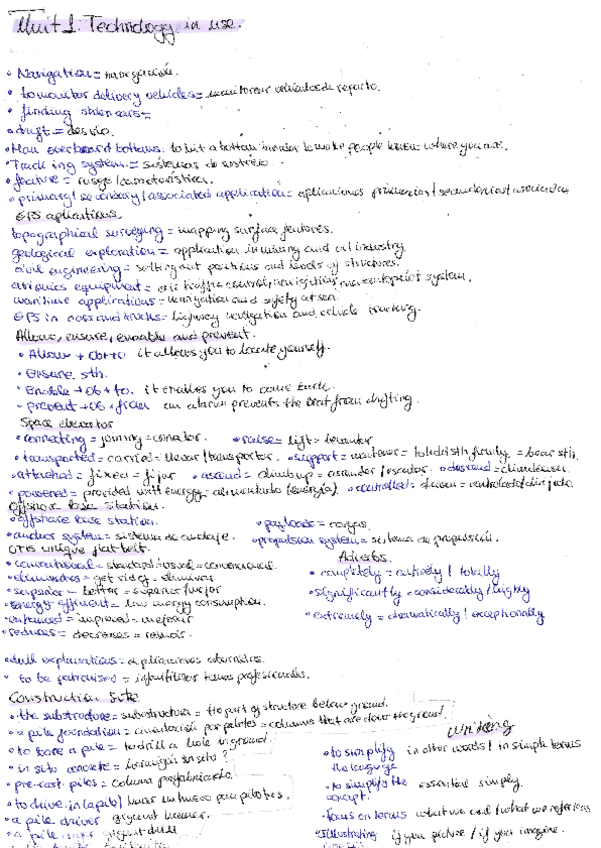 Unit 1. Technology in use.
• Navigation = navegación.
• to monitor delivery vehicles = monitorear vehículos de reparto.
• finding stolen cars =
• drift = desvío.
• Man overboard buttons. to hit a button in order to make people know where you are.
• Tracking system = sistemas de rastreo
• feature = rasgo/característica.
• primary/ secondary/ associated application = aplicaciones primarias/ secundarias/ asociadas
GPS aplications.
topographical surveying = mapping surface features.
geological exploration = application in mining and oil industry
civil engineering = setting out positions and levels of structures.
avionics equipment = air traffic control, navigation and autopilot system.
maritime applications = navigation and safety at sea.
GPS in cars and trucks = highway navigation and vehicle tracking.
Allow, ensure, enable and prevent.
• Allow + Ob + to it allows you to locate yourself.
• Ensure sth.
• Enable + Ob + to. it enables you to come back.
• prevent + Ob + from an alarm prevents the boat from drifting.
Space elevator
• connecting = joining = conectar. • raise = lift = levantar
• transported = carried = llevar/transportar. • support = = bear sth.
• attached = fixed = fijar • ascend = climb up = ascender/escalar. • descend =
• powered = provided with energy = alimentado (energía). • controlled = driven =
Offshore base station.
• offshore base station. • payloads = cargas.
• anchor system = sistema de anclaje. • propulsion system = sistema de propulsión.
Otis unique flat belt. Adverbs.
• conventional = standard/usual = convencional. • completely = entirely / totally
• eliminates = get rid of = eliminar • significantly = considerably / highly
• superior = better = superior/mejor • extremely = dramatically / exceptionally
• Energy-efficient = low energy consumption.
• enhanced = improved = mejorar
• reduces = decreases = reducir.
• dull explanations = explicaciones aburridas.
• to be patronised =
Construction Site
• the substructure = substructura = the part of structure below ground.
• a pile foundation = cimentación por pilotes = columns that are down the ground.
• to bore a pile = to drill a hole in ground.
• in situ concrete = hormigón in situ?
• pre-cast piles = columna prefabricada.
• to drive in (a pile)/ hacer un hueco para pilotes.
• a pile driver gigant hammer.
• a pile gigant drill
Writing
• to simplify the language in other words / in simple terms
• to simplify the concept. essential simply.
• focus on terms what we call / what we refer to as
• Illustrating if you picture / if you imagine.